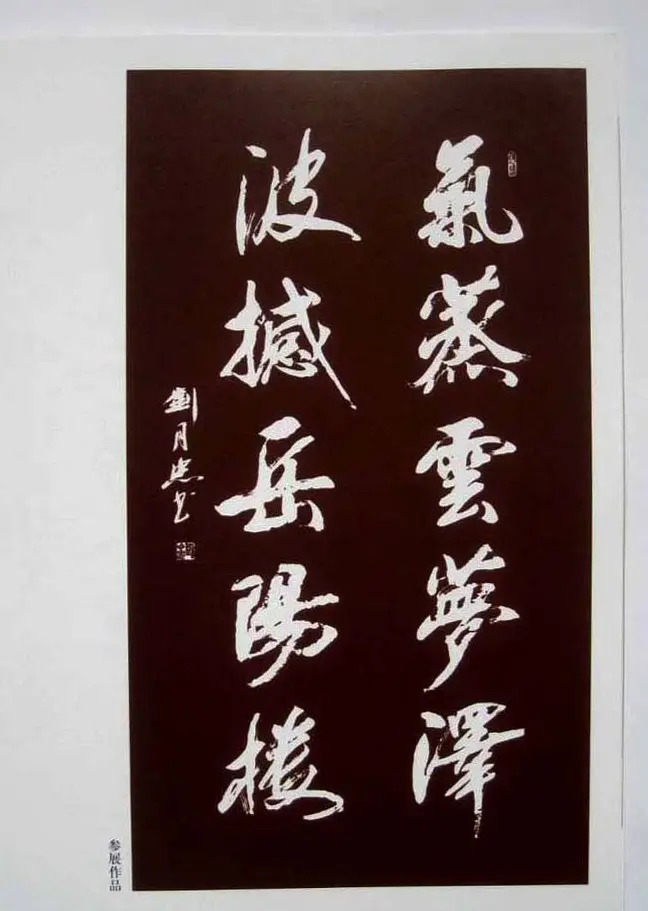 氣蒸雲夢澤
波撼岳陽楼
劉月忠书
参展作品